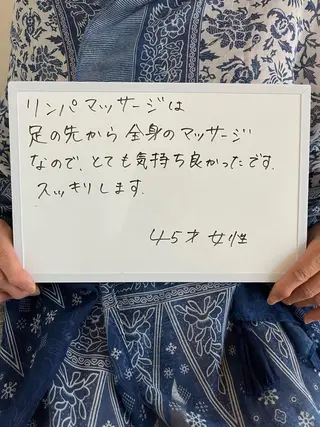 リンパマッサージは
足の先から全身のマッサージ
なので、とても気持ち良かったです.
スッキリします.
45才女性